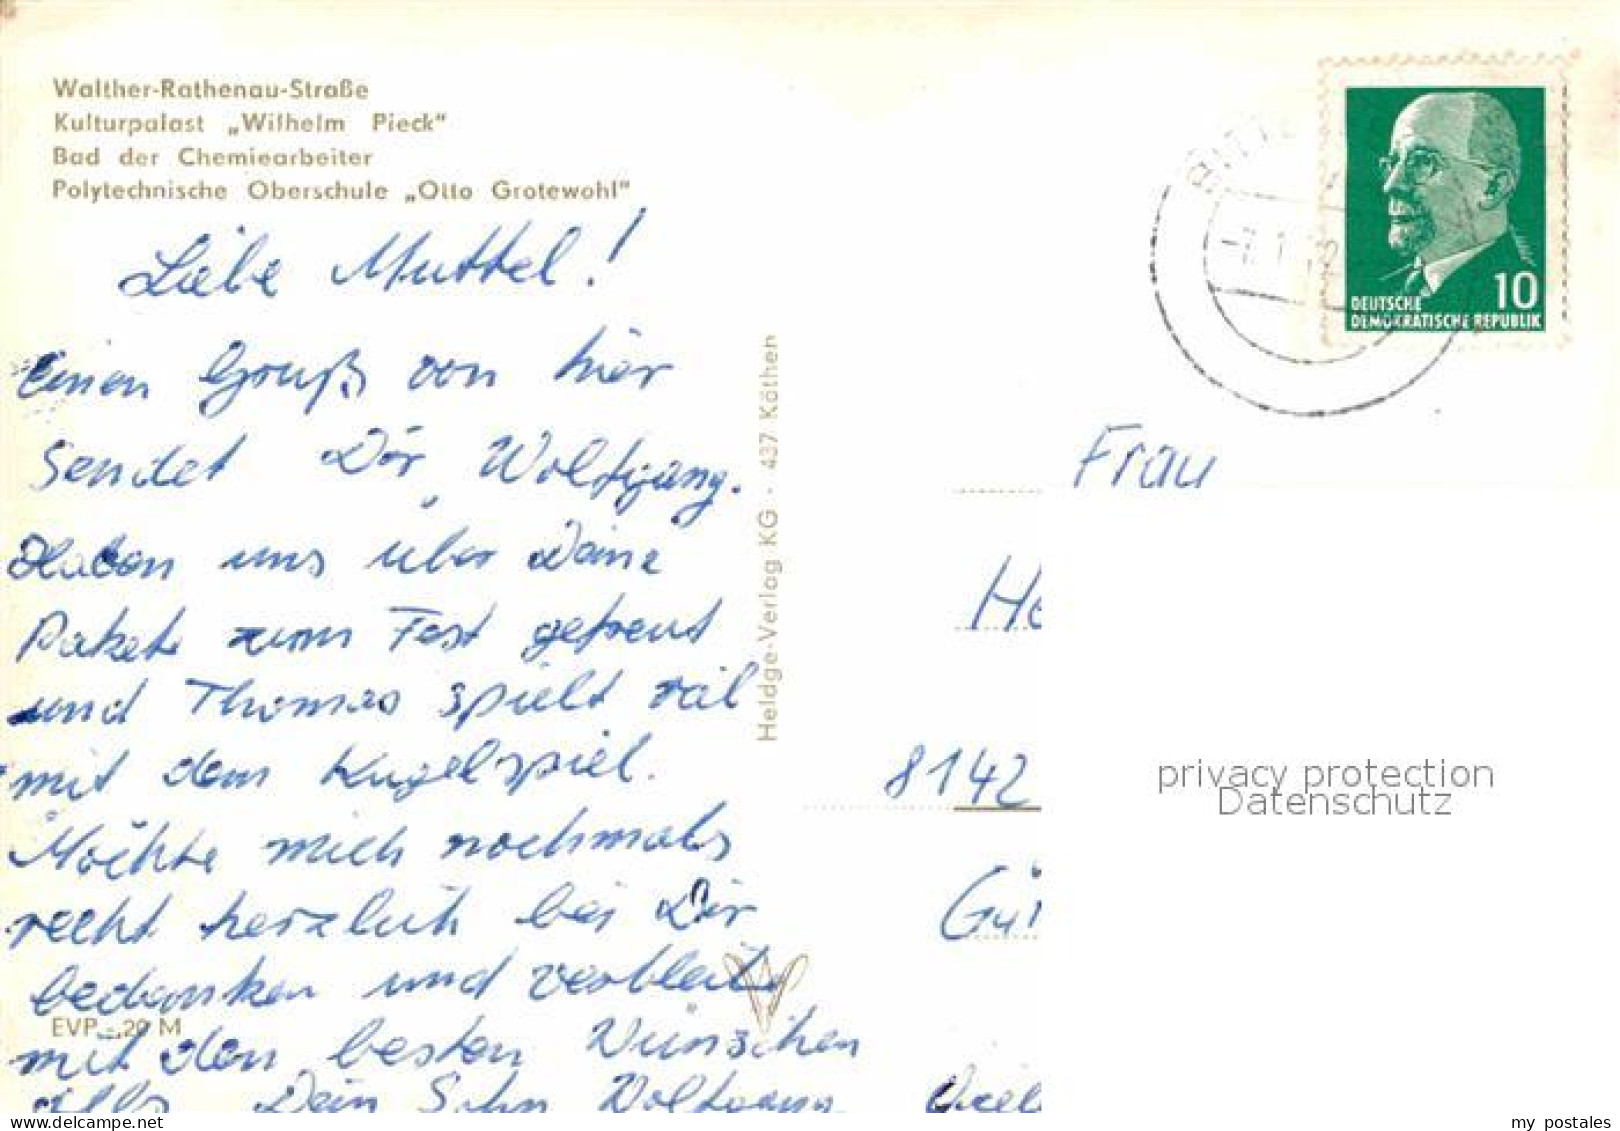 Walther-Rathenau-Straße
Kulturpalast „Wilhelm Pieck"
Bad der Chemiearbeiter
Polytechnische Oberschule „Otto Grotewohl"
Liebe Muttel!
Einen Gruß von hier
sendet Dir Wolfgang.
Haben uns über Deine
Pakete zum Fest gefreut
und Thomas spielt viel
mit dem Kugelspiel.
Möchte mich nochmals
recht herzlich bei Dir
bedanken und verbleibe
mit den besten Wünschen
Dein Sohn Wolfgang
EVP -,20 M
Heldge-Verlag KG · 437 Köthen
10
DEUTSCHE
DEMOKRATISCHE REPUBLIK
Frau
He
8142
privacy protection
Datenschutz
my postales